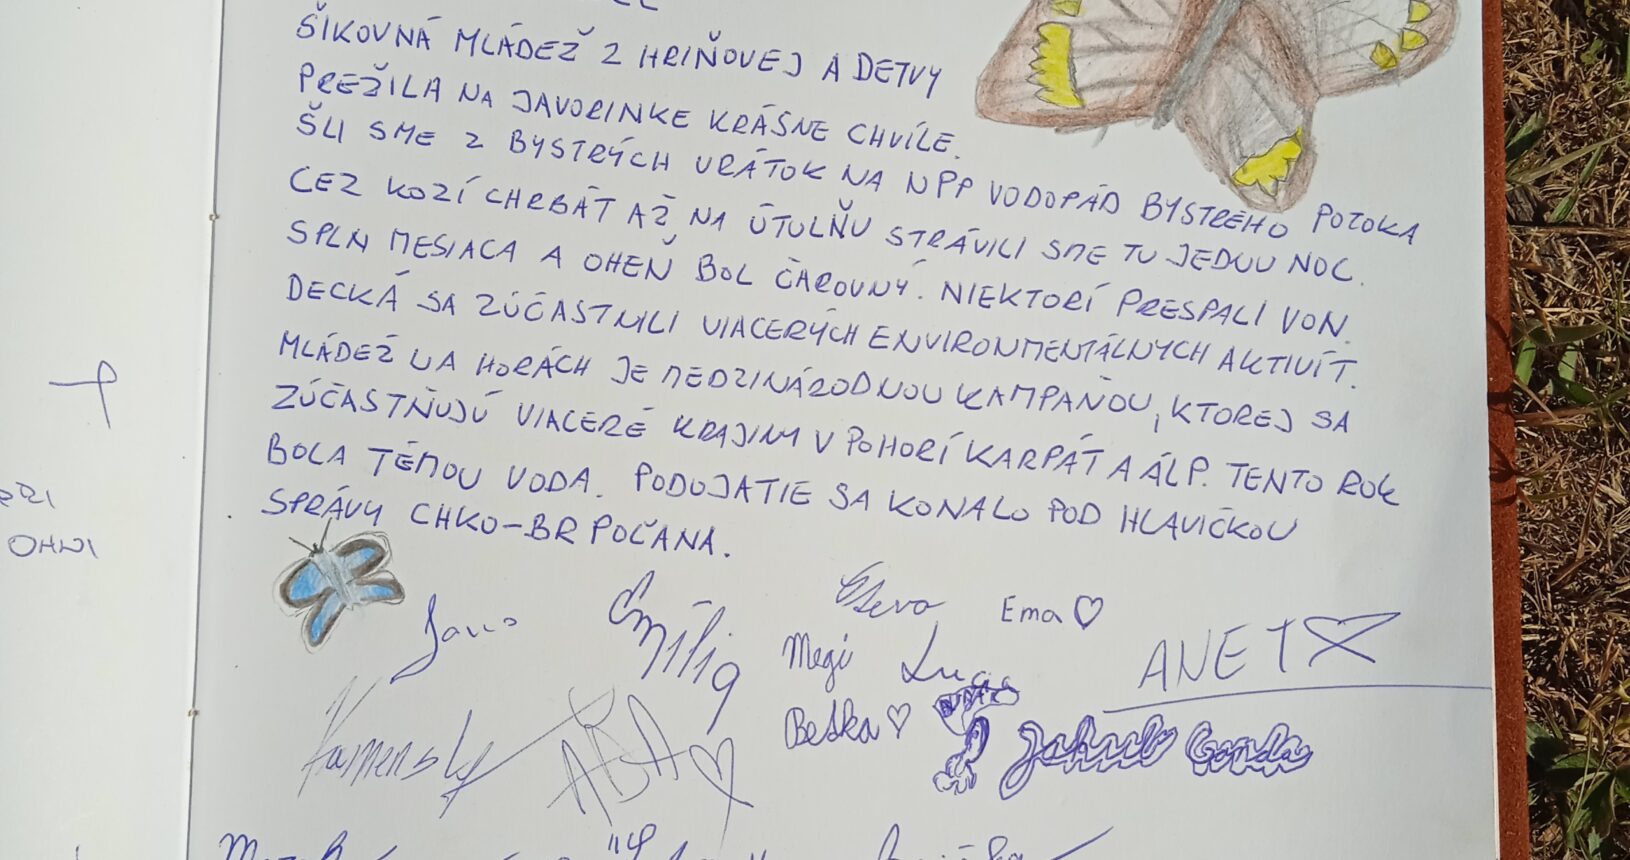 ŠIKOVNÁ MLÁDEŽ Z HRIŇOVEJ A DETVY
PREŽILA NA JAVORINKE KRÁSNE CHVÍLE.
ŠLI SME Z BYSTRÝCH VRÁTOK NA NPP VODOPÁD BYSTRÉHO POTOKA
CEZ KOZÍ CHRBÁT AŽ NA ÚTULŇU STRÁVILI SME TU JEDNU NOC.
SPLN MESIACA A OHEŇ BOL ČAROVNÝ. NIEKTORÍ PRESPALI VON.
DECKÁ SA ZÚČASTNILI VIACERÝCH ENVIRONMENTÁLNYCH AKTIVÍT.
MLÁDEŽ NA HORÁCH JE MEDZINÁRODNOU KAMPAŇOU, KTOREJ SA
ZÚČASTŇUJÚ VIACERÉ KRAJINY V POHORÍ KARPÁT A ÁLP. TENTO ROK
BOLA TÉMOU VODA. PODUJATIE SA KONALO POD HLAVIČKOU
SPRÁVY CHKO-BR POĽANA.
OHNI
Emília
Ema ♡
Megi
ANET
Kamensky
Beťka ♡
Jakub